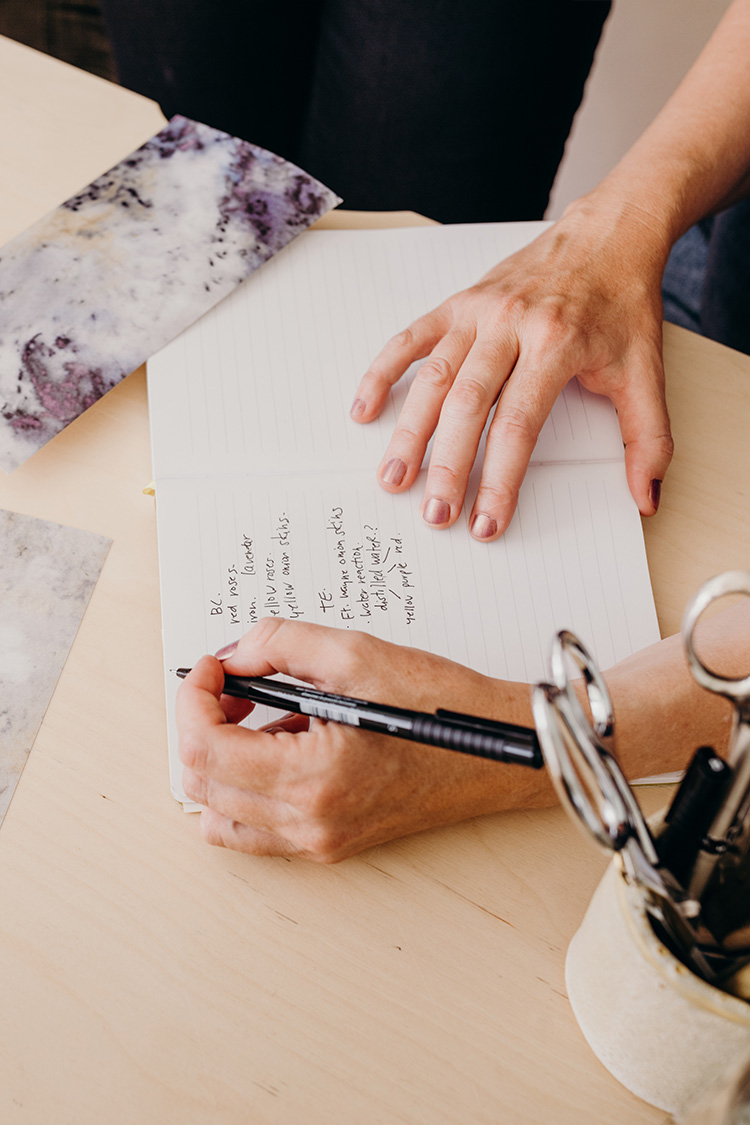 BC.
red roses.
iron. lavender
yellow roses.
yellow onion skins.
TE.
· Ft. wayne onion skins
· water reaction.
distilled water?
yellow purple red.